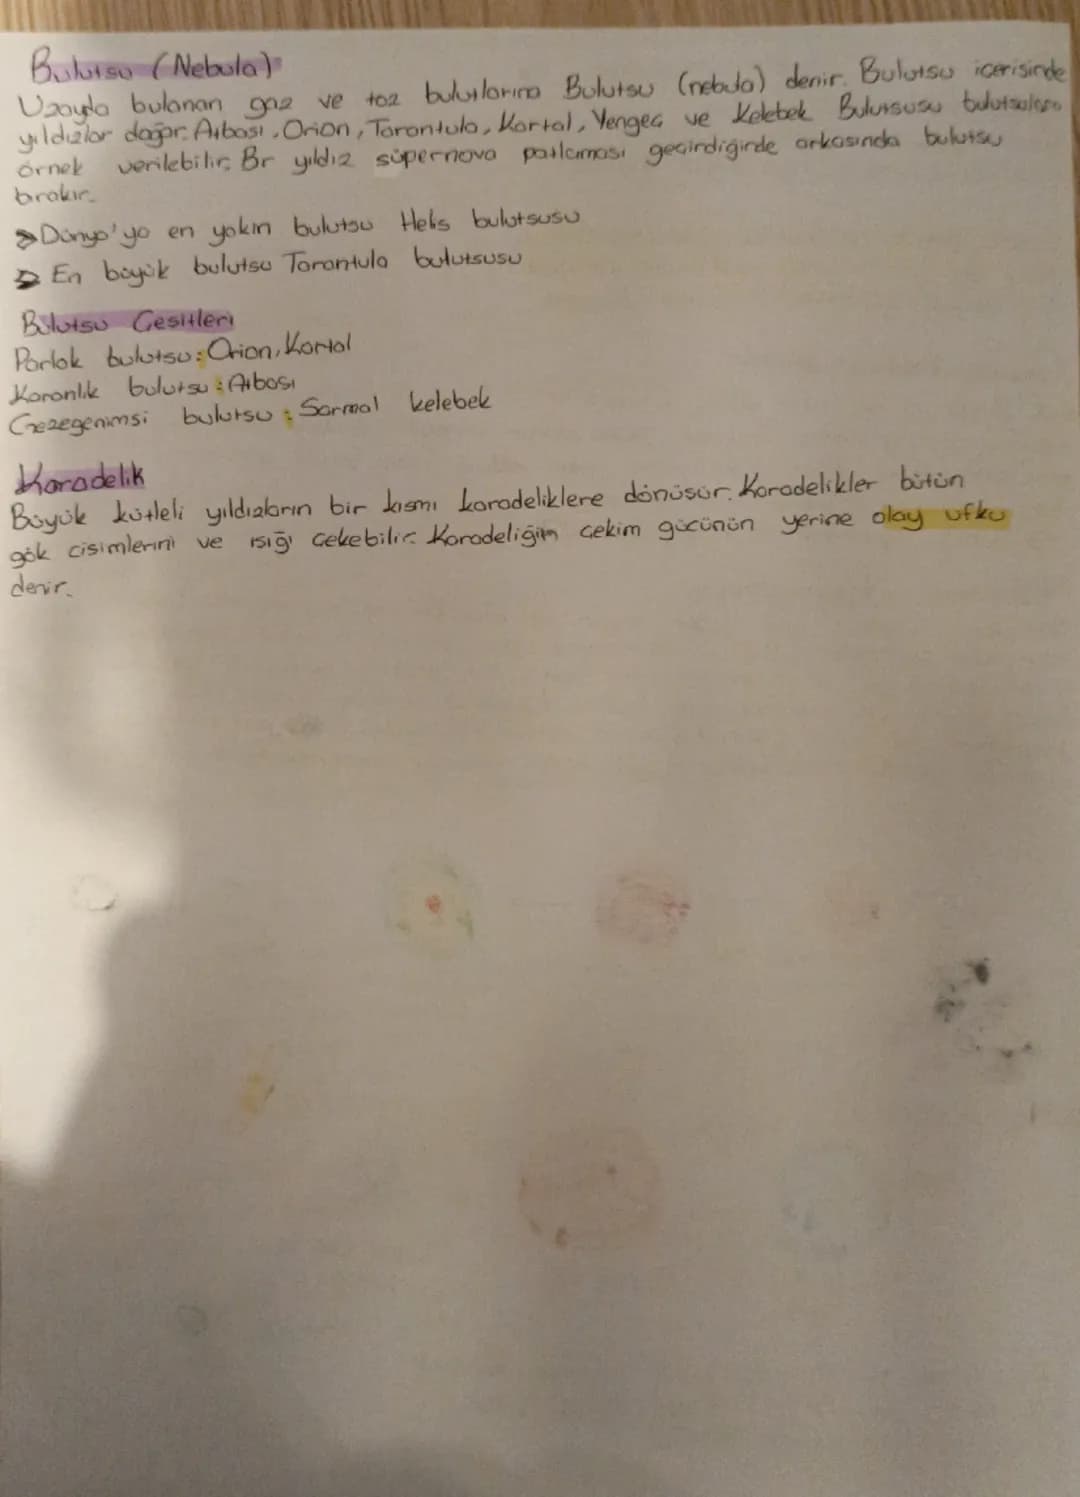 Bulutsu (Nebula)
Uzayda bulunan gaz ve toz bulutlarına Bulutsu (nebula) denir. Bulutsu içerisinde
yıldızlar doğar. Atbaşı, Orion, Tarantula, Kartal, Yengeç ve Kelebek Bulutsusu bulutsulara
örnek verilebilir. Bir yıldız süpernova patlaması geçirdiğinde arkasında bulutsu
bırakır.
Dünya'ya en yakın bulutsu Helis bulutsusu
En büyük bulutsu Tarantula bulutsusu
Bulutsu Çeşitleri
Parlak bulutsu: Orion, Kartal
Karanlık bulutsu: Atbaşı
Gezegenimsi bulutsu: Sarmal kelebek
Karadelik
Büyük kütleli yıldızların bir kısmı karadeliklere dönüşür. Karadelikler bütün
gök cisimlerini ve ışığı çekebilir. Karadeliğin çekim gücünün yerine olay ufku
denir.